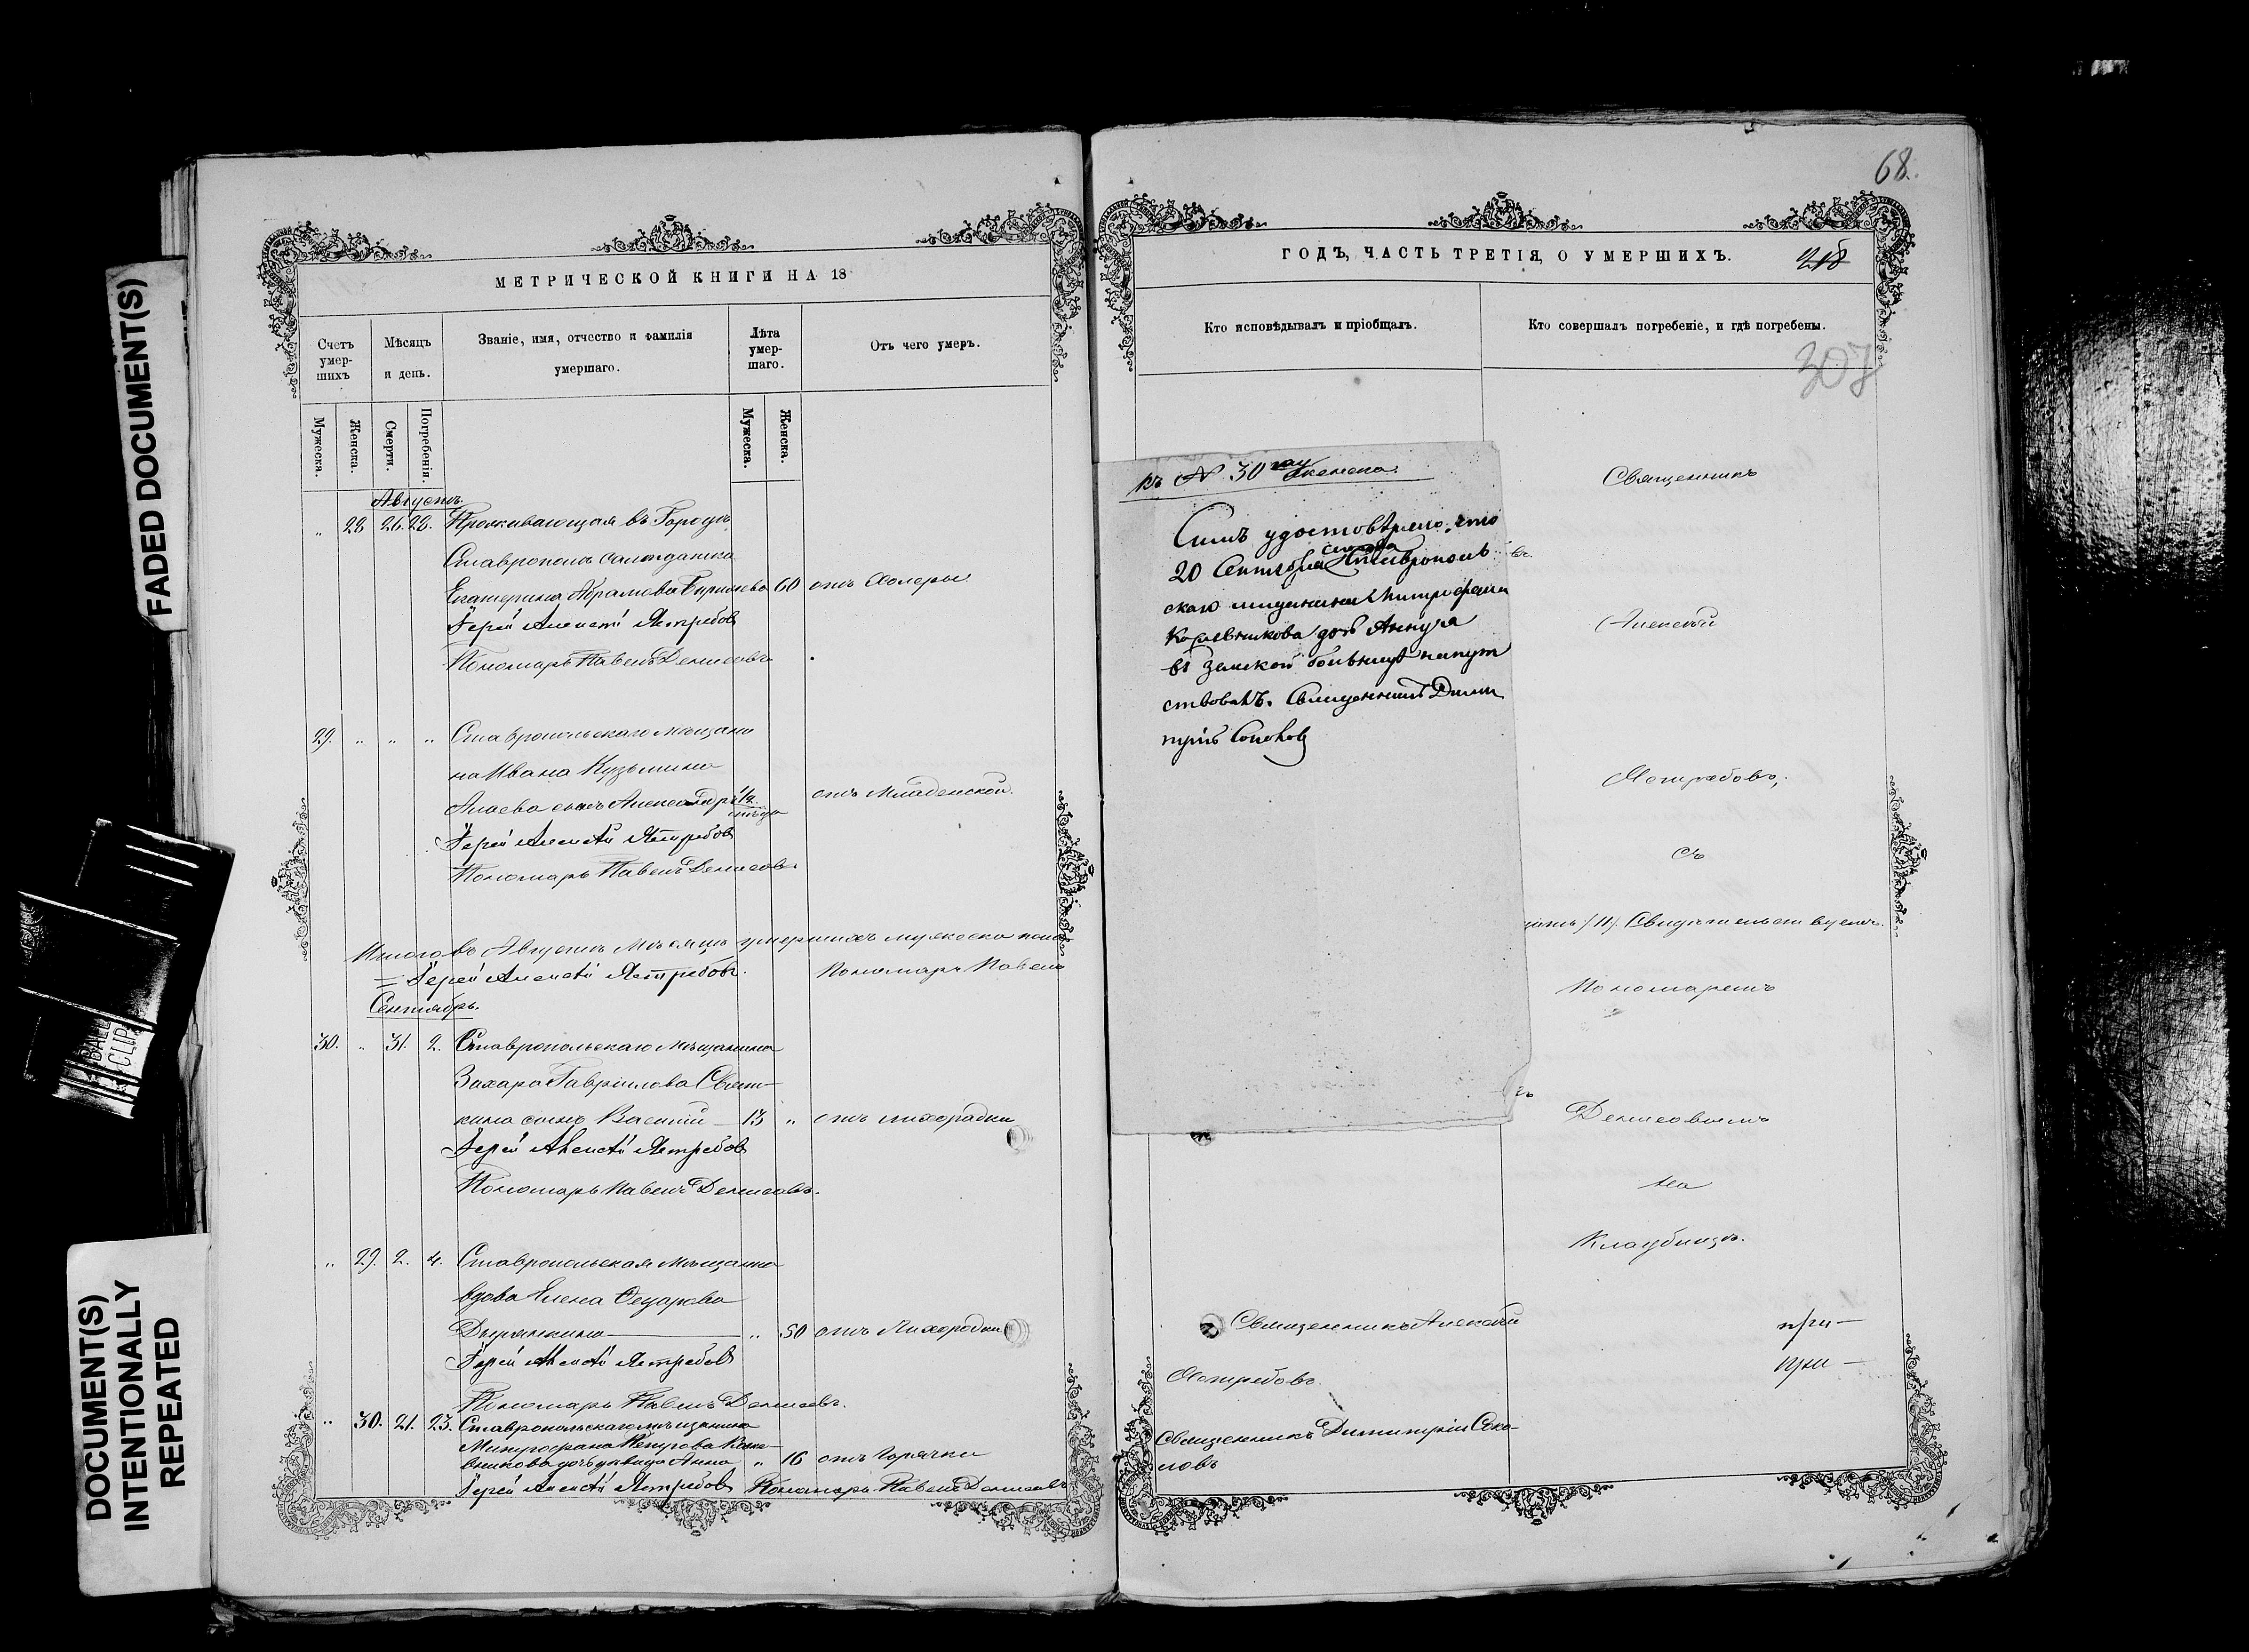 68.
МЕТРИЧЕСКОЙ КНИГИ НА 18
ГОДЪ, ЧАСТЬ ТРЕТІЯ, О УМЕРШИХЪ.
Счетъ умер-шихъ
Мѣсяцъ и день.
Званіе, имя, отчество и фамилія умершаго.
Лѣта умер-шаго.
Отъ чего умеръ.
Кто исповѣдывалъ и пріобщалъ.
Кто совершалъ погребеніе, и гдѣ погребены.
307
Мужеска.
Женска.
Смерти.
Погребенія.
Мужеска.
Женска.
Августъ.
„ 28 26. 28. Проживающая въ Городѣ
Ставрополѣ солдатка
Екатерина Абрамова 60 отъ Холеры
Іерей Алексѣй Ястребовъ
Пономарь Павелъ Денисовъ
29. „ „ „ Ставропольскаго мѣщани
на Ивана Кузьмина
сынъ Александръ отъ Младенской.
Іерей Алексѣй Ястребовъ
Пономарь Павелъ Денисовъ
Итого въ Августѣ мѣсяцѣ умершихъ мужеска пола
Іерей Алексѣй Ястребовъ. Пономарь Павелъ
Сентябрь.
30. „ 31. 2. Ставропольскаго мѣщанина
Захара Гаврилова
кина сынъ Василій 13 „ отъ лихорадки
Іерей Алексѣй Ястребовъ
Пономарь Павелъ Денисовъ.
„ 29. 2. 4. Ставропольская мѣщанка
вдова Елена Ѳедорова
„ 50 отъ Лихорадки
Іерей Алексѣй Ястребовъ
Пономарь Павелъ Денисовъ.
„ 30. 21. 23. Ставропольскаго мѣщанина
Митрофана Петрова
дочь дѣвица Анна „ 16 отъ Горячки
Іерей Алексѣй Ястребовъ Пономарь Павелъ Денисовъ
къ № 30 женска.
Симъ удостовѣряю, что
20 Сентября Ставрополь
скаго мѣщанина Митрофана
дочь Анну
въ Земской больницѣ напут
ствовалъ. Священникъ Дими
трій Соколовъ
Священникъ
Алексѣй
Ястребовъ,
съ
Пономаремъ
Денисовымъ
на
Кладбищѣ.
Священникъ Алексѣй
Ястребовъ.
при—
при—
Священникъ Димитрій Соко-
ловъ
FADED DOCUMENT(S)
DOCUMENT(S)
INTENTIONALLY
REPEATED
BALL
CLIP